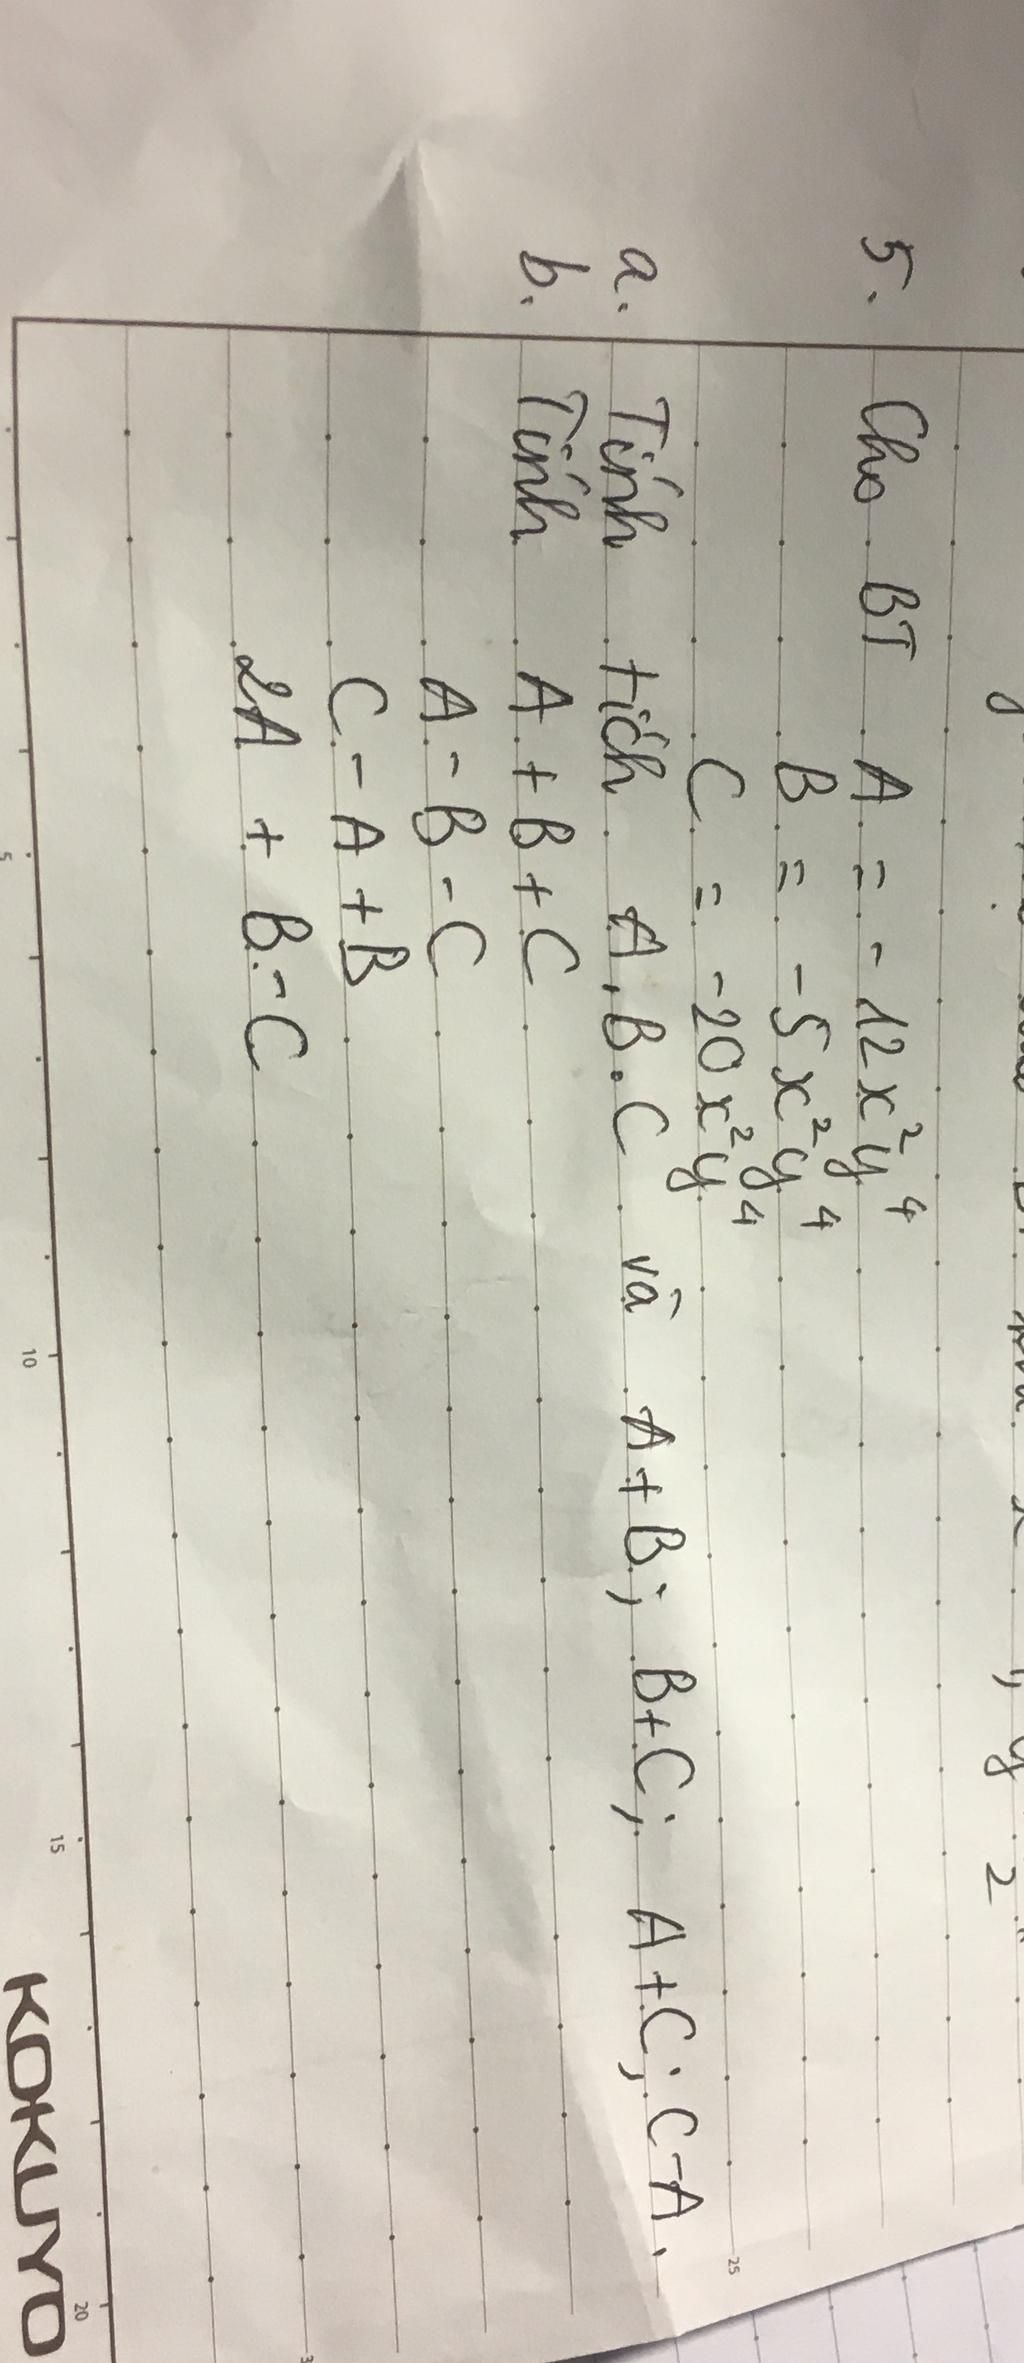 5. Cho BT A = -12x²y⁴
B = -5x²y⁴
C = -20x²y⁴
a. Tính tích A.B.C và A+B; B+C; A+C; C-A.
b. Tính A + B + C
A - B - C
C - A + B
2A + B - C
5 10 15 20
25
KOKUYO